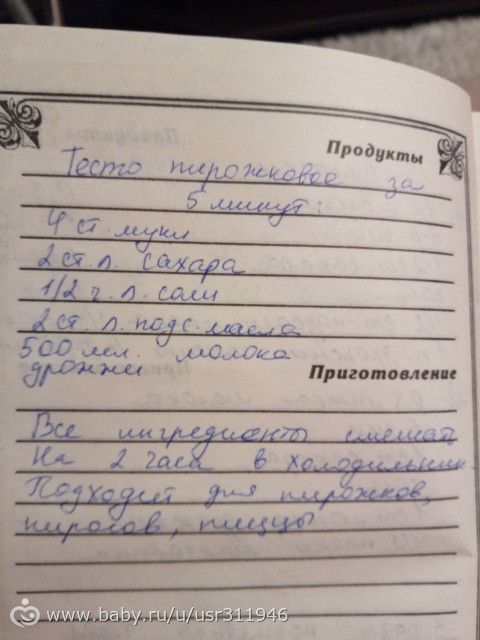 Продукты
Тесто пирожковое за
5 минут:
4 ст. муки
2 ст. л. сахара
1/2 ч. л. соли
2 ст. л. подс. масла
500 мл. молока
дрожжи
Приготовление
Все ингредиенты смешать
На 2 часа в холодильник.
Подходит для пирожков,
пирогов, пиццы
www.baby.ru/u/usr311946